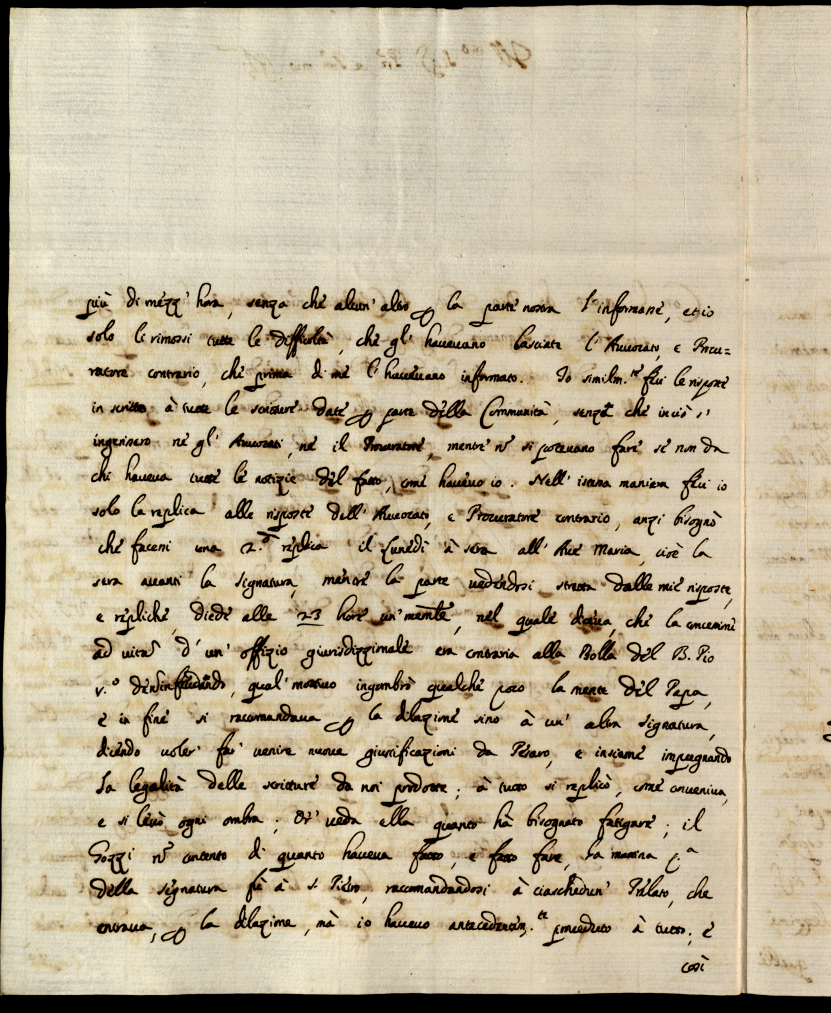 più di mezz' hora, senza che alcun' altro p la parte nostra l'informasse, et io
solo le rimossi tutte le difficoltà, che gl' havevano lasciate l'Avvocato, e Procu=
ratore contrario, che prima di me l'havevano informato. Io similm.te feci le risposte
in scritto à tutte le scritture date p parte della Communità, senza che in ciò s'
ingerissero nè gl' Avvocati, nè il Procuratore, mentre nõ si potevano fare se non da
chi haveva tutte le notizie del fatto, come havevo io. Nell' istessa maniera feci io
solo la replica alle risposte dell' Avvocato, e Procuratore contrario, anzi bisognò
che facessi una 2.a replica il Lunedì à sera all' Ave Maria, cioè la
sera avanti la Signatura, mentre la parte vedendosi stretta dalle mie risposte,
e repliche, diede alle 23 hore un' mem.le, nel quale diceva, che la concessione
ad vitam d' un' offizio giurisdizzionale era contraria alla Bolla del B. Pio
V.o de non infeudando, qual' motivo ingombrò qualche poco la mente del Papa,
e in fine si racomandava p la dilazione sino à un' altra Signatura,
dicendo voler' far' venire nuove giustificazioni da Pesaro, e insieme impugnando
la legalità delle scritture da noi prodotte; à tutto si replicò, come conveniva,
e si levò ogni ombra; Or' veda ella quanto hà bisognato fatigare; il
Gozzi nõ contento di quanto haveva fatto, e fatto fare, la mattina
della Signatura fù à S. Pietro, raccomandandosi à ciaschedun' Prelato, che
entrava, p la dilazione, mà io havevo antecedentem.te proveduto à tutto; e
così